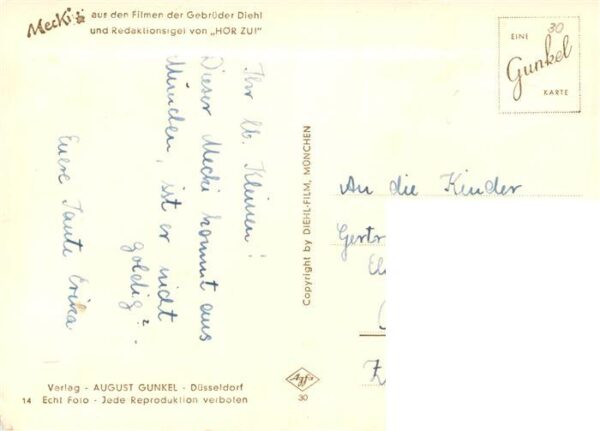 Mecki aus den Filmen der Gebrüder Diehl
und Redaktionsigel von „HÖR ZU!"
30
EINE
Gunkel
KARTE
Ihr lb. Kleinen!
Dieser Mecki kommt aus
München, ist er nicht
goldig?
Eure Tante Erika
Copyright by DIEHL-FILM, MÜNCHEN
An die Kinder
Gertr
Verlag - AUGUST GUNKEL - Düsseldorf
14 Echt Foto - Jede Reproduktion verboten
Agfa
30